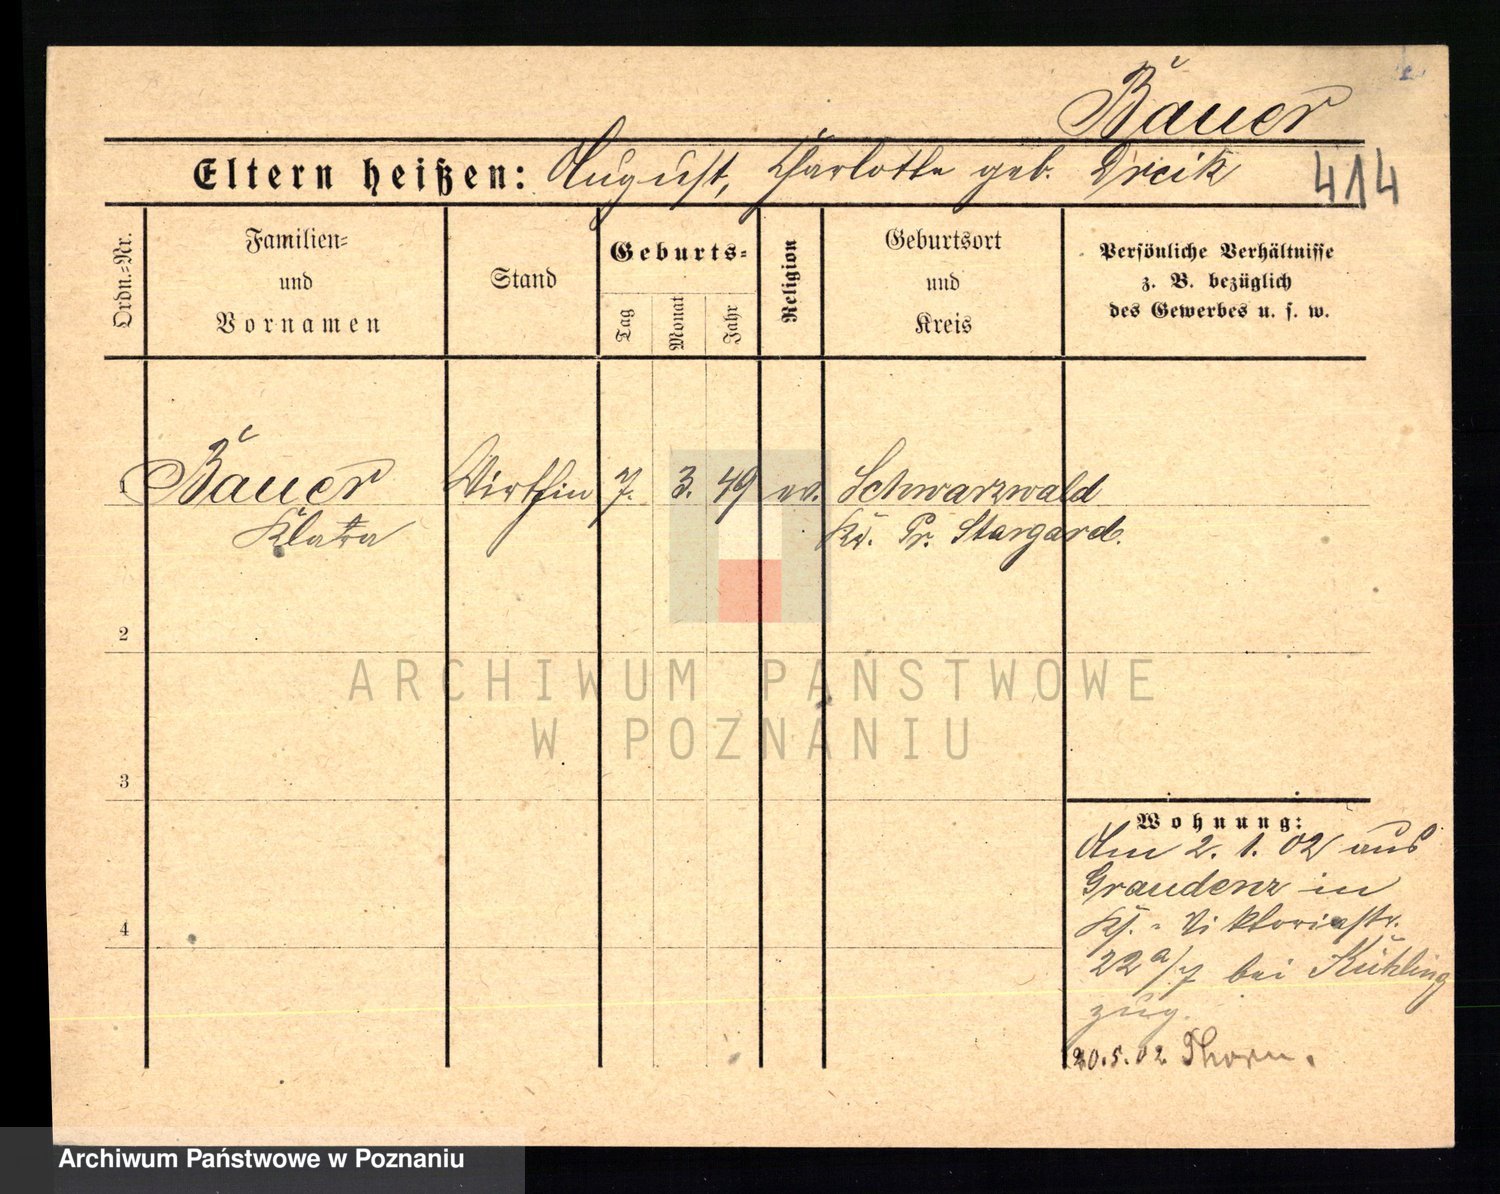 Bauer
Eltern heißen: August, Charlotte geb. Dreik
414
Ordn.=Nr.
Familien=
und
Vornamen
Stand
Geburts=
Tag
Monat
Jahr
Religion
Geburtsort
und
Kreis
Persönliche Verhältnisse
z. B. bezüglich
des Gewerbes u. s. w.
1 Bauer Wirthin 7. 3. 49 ev. Schwarzwald
Klara Kr. Pr. Stargard.
2
3
4
Wohnung:
Am 2. 1. 02 aus
Graudenz in
Viktoriastr.
22a/7 bei Kühling
zug.
20.5.02 Thorn.
ARCHIWUM PAŃSTWOWE
W POZNANIU
Archiwum Państwowe w Poznaniu